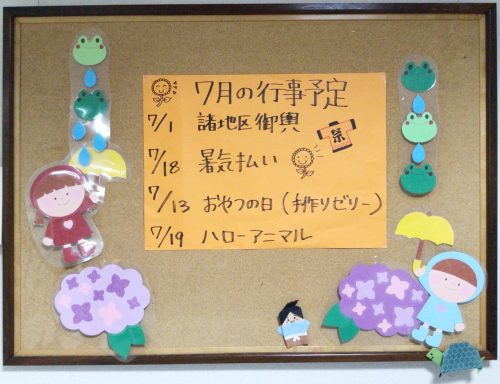 7月の行事予定
7/1 諸地区御輿
7/18 暑気払い 祭
7/13 おやつの日(手作りゼリー)
7/19 ハローアニマル